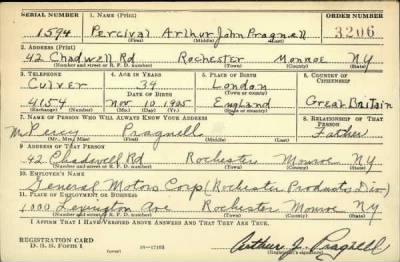 SERIAL NUMBER 1. NAME (Print) ORDER NUMBER
1594 Percival Arthur John Pragnell 3206
(First) (Middle) (Last)
2. ADDRESS (Print)
42 Chadwell Rd Rochester Monroe NY
(Number and street or R. F. D. number) (Town) (County) (State)
3. TELEPHONE 4. AGE IN YEARS 5. PLACE OF BIRTH 6. COUNTRY OF CITIZENSHIP
Culver 34 London
DATE OF BIRTH (Town or county)
4154 Nov. 10, 1905 England Great Britain
(Exchange) (Number) (Mo.) (Day) (Yr.) (State or country)
7. NAME OF PERSON WHO WILL ALWAYS KNOW YOUR ADDRESS 8. RELATIONSHIP OF THAT PERSON
Mr Percy Pragnell Father
(Mr., Mrs., Miss) (First) (Middle) (Last)
9. ADDRESS OF THAT PERSON
42 Chadwell Rd Rochester Monroe NY
(Number and street or R. F. D. number) (Town) (County) (State)
10. EMPLOYER'S NAME
General Motors Corp (Rochester Products Div)
11. PLACE OF EMPLOYMENT OR BUSINESS
1000 Lexington Ave Rochester Monroe NY
(Number and street or R. F. D. number) (Town) (County) (State)
I AFFIRM THAT I HAVE VERIFIED ABOVE ANSWERS AND THAT THEY ARE TRUE.
REGISTRATION CARD
D. S. S. FORM 1 16—17105 Arthur J. Pragnell